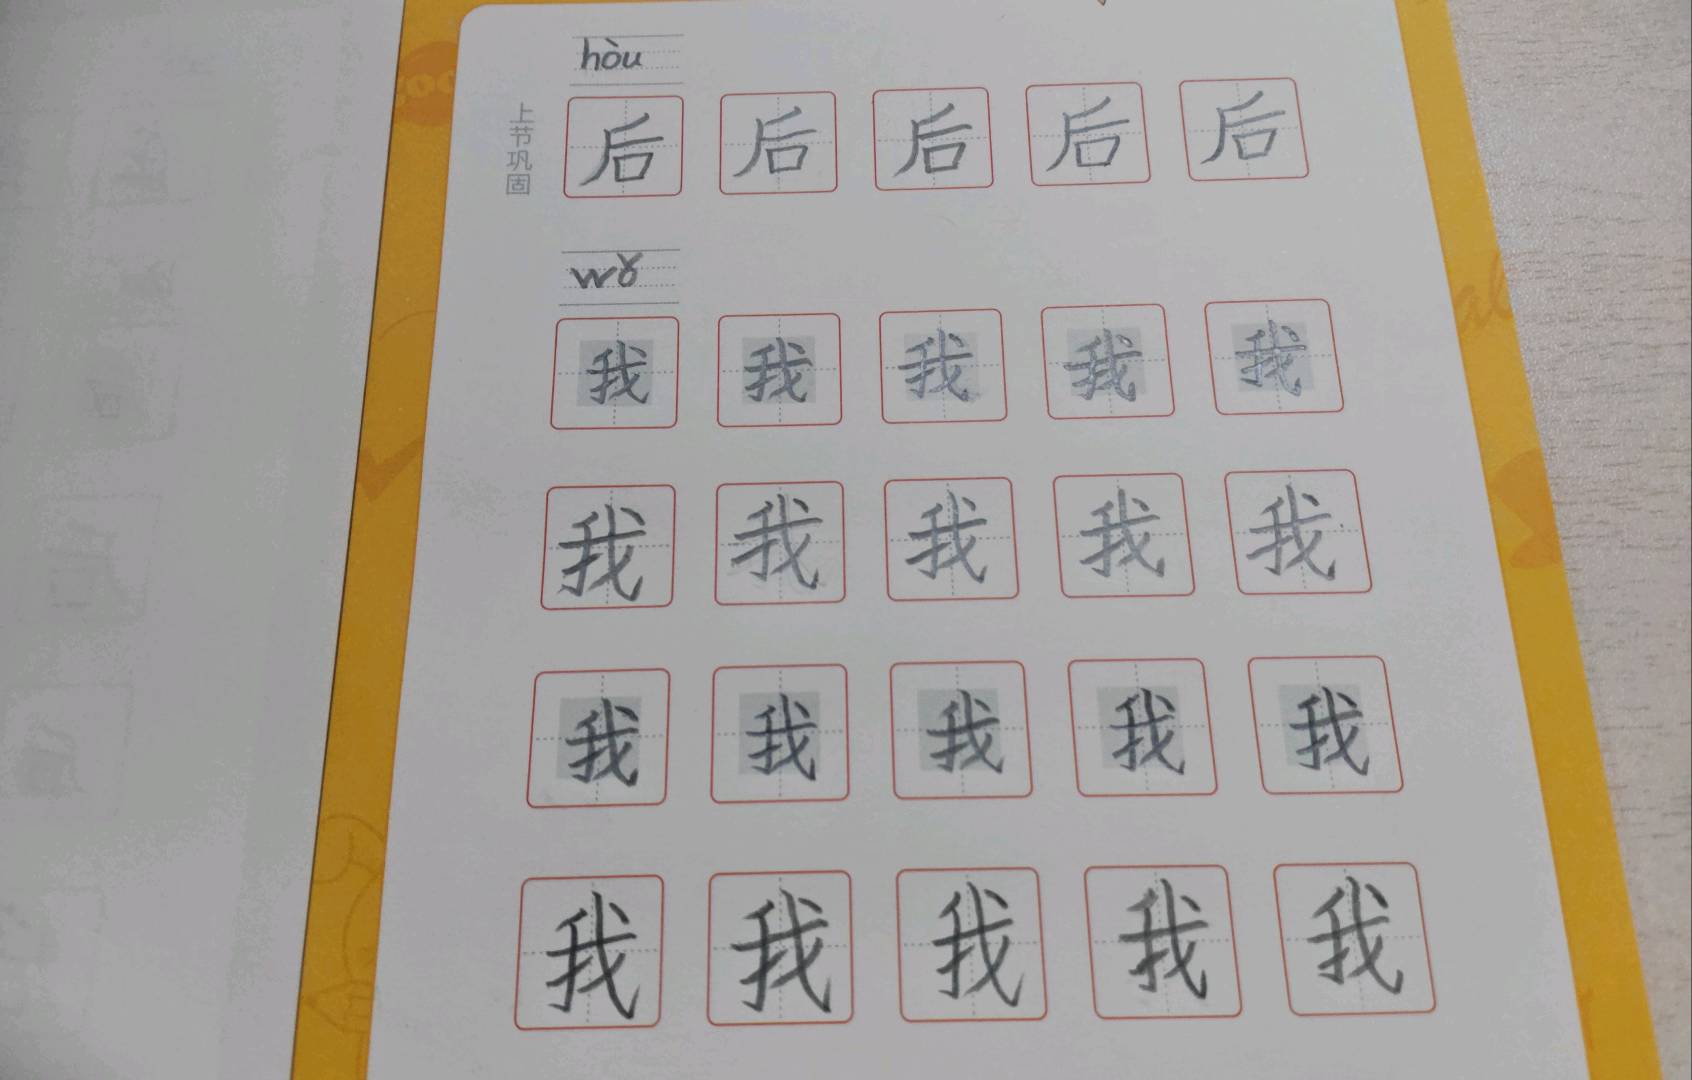 hòu
上节巩固
后 后 后 后 后
wǒ
我 我 我 我 我
我 我 我 我 我
我 我 我 我 我
我 我 我 我 我